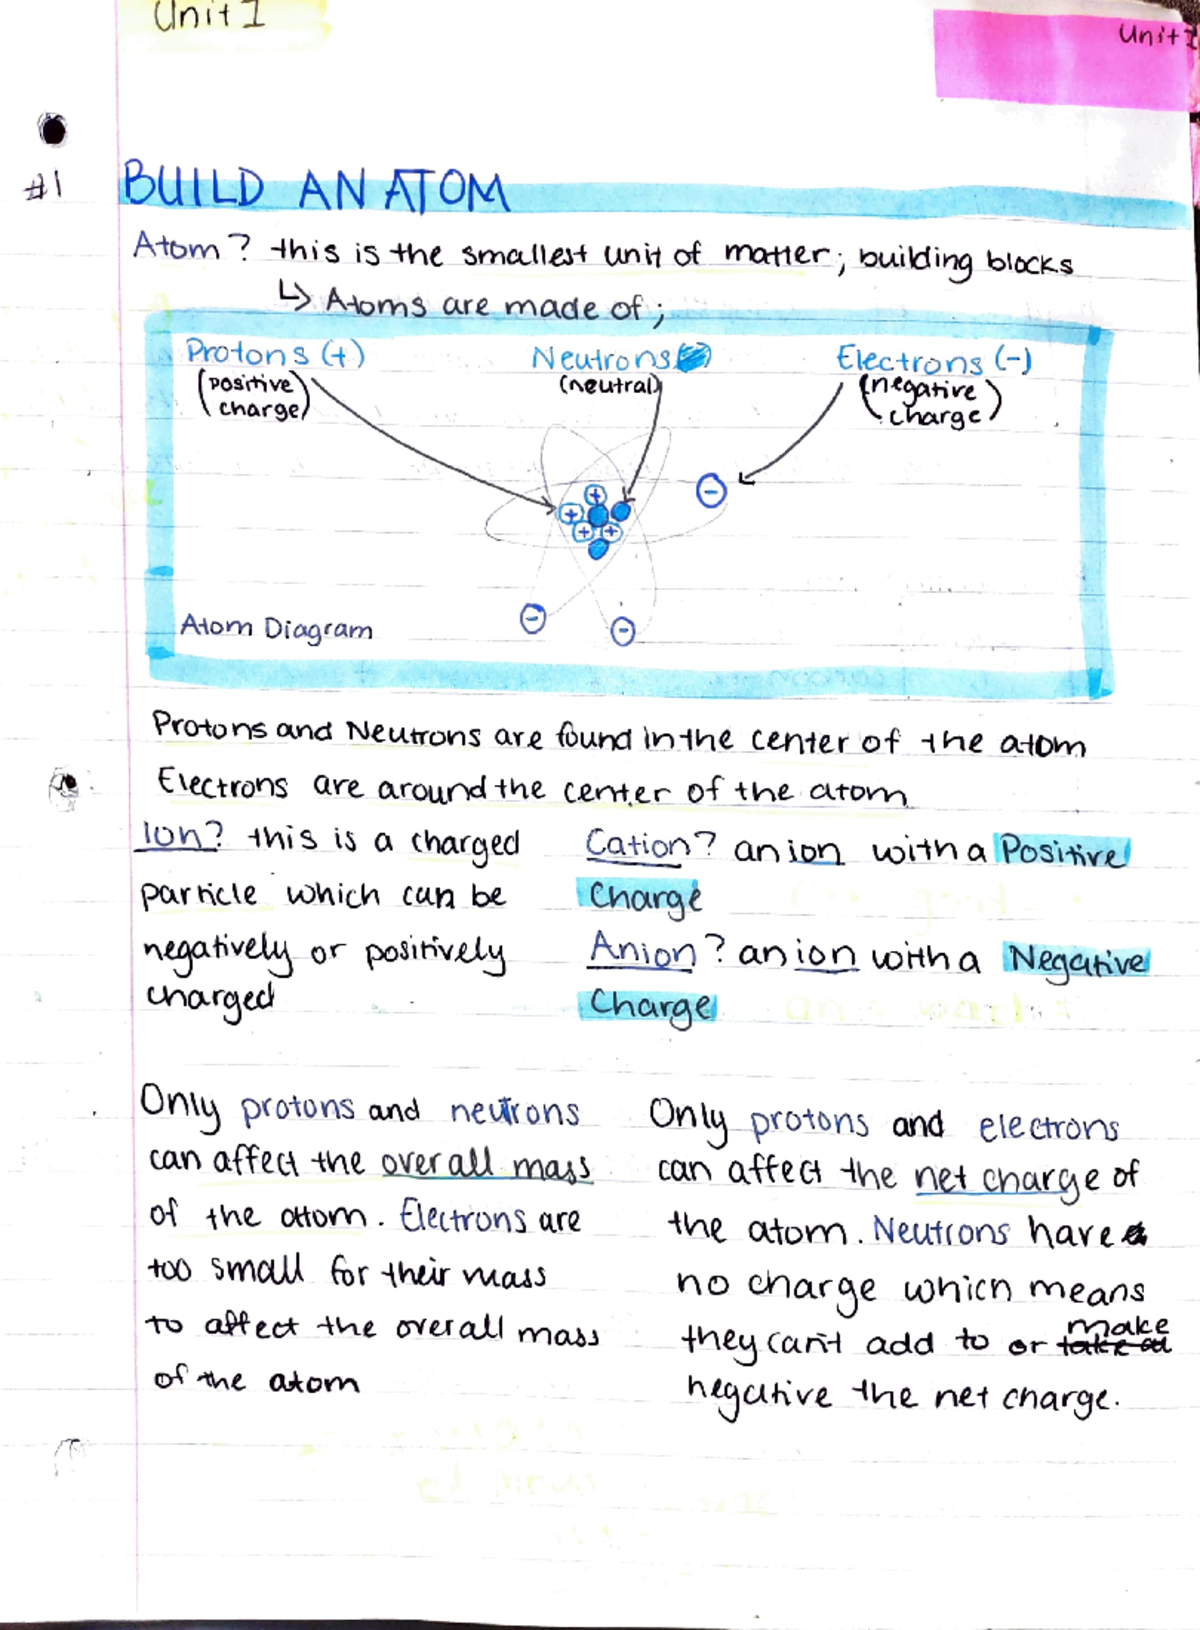 Unit 1
Unit 1
#1 BUILD AN ATOM
Atom? this is the smallest unit of matter; building blocks
↳ Atoms are made of;
Protons (+) Neutrons Electrons (-)
(positive charge) (neutral) (negative charge)
+
+
+ +
-
-
-
Atom Diagram
Protons and Neutrons are found in the center of the atom
Electrons are around the center of the atom
Ion? this is a charged
particle which can be
negatively or positively
charged
Cation? an ion with a Positive
Charge
Anion? an ion with a Negative
Charge
Only protons and neutrons
can affect the overall mass
of the atom. Electrons are
too small for their mass
to affect the overall mass
of the atom
Only protons and electrons
can affect the net charge of
the atom. Neutrons have
no charge which means
they can't add to or make
negative the net charge.